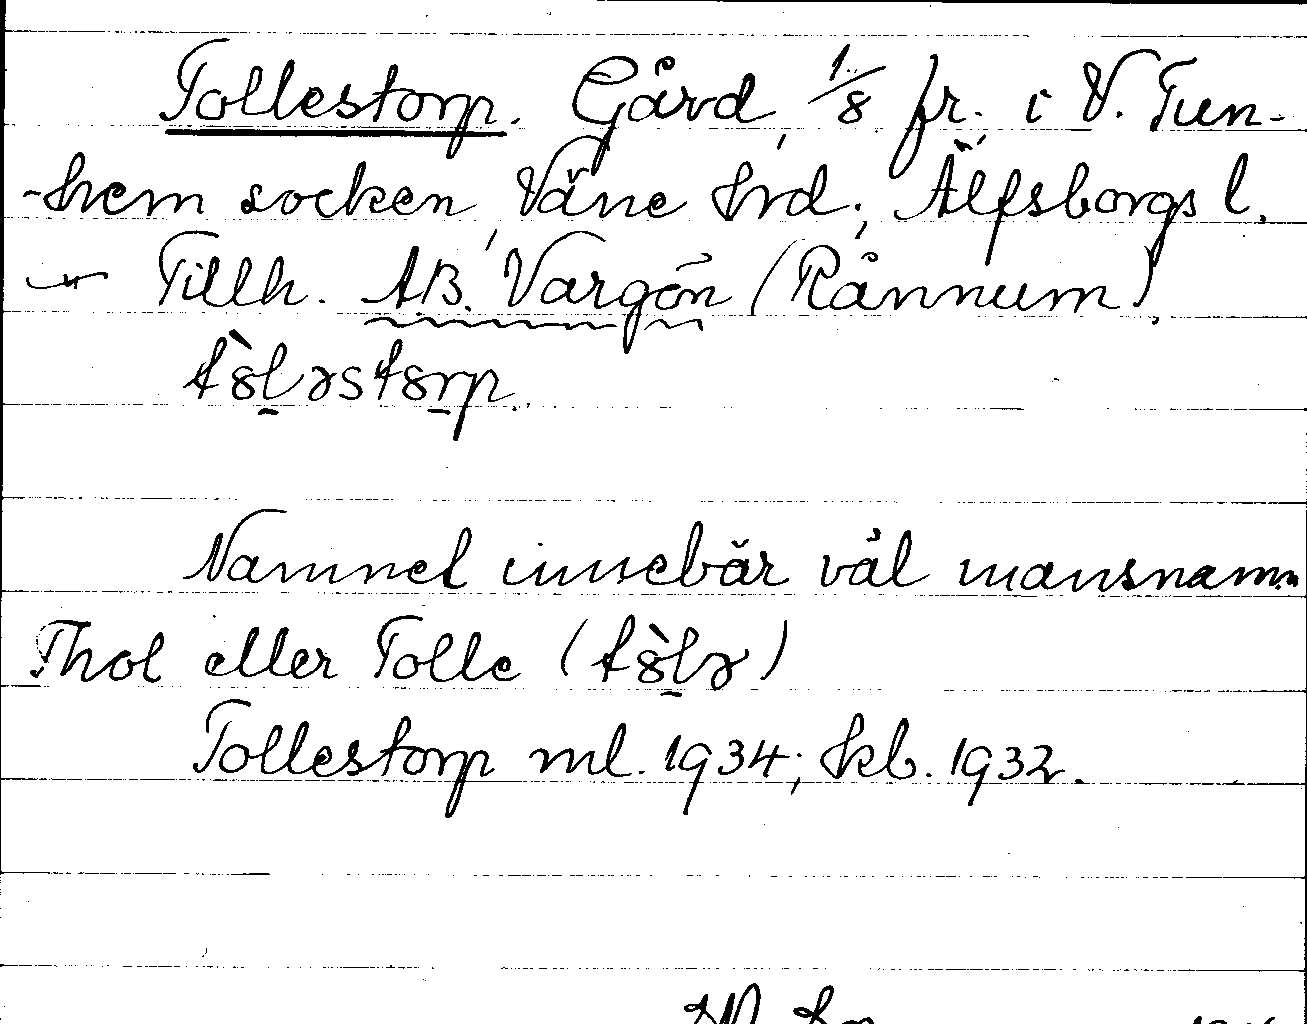 Tollestorp. Gård, 1/8 fr. i V. Tun-
-hem socken, Väne hrd; Älfsborgs l.
Tillh. A.B. Vargön (Rånnum).
tòləstorp.
Namnet innebär väl mansnamn
Thol eller Tolle (tòlə)
Tollestorp ml. 1934; skb. 1932.